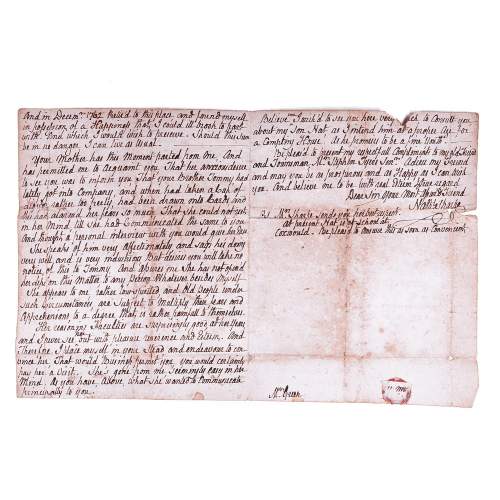 And in Decemr. 1762 Retired to this place and found myself
in possession of a Happiness that I could ill brook to part
with And which I would wish to preserve. Should this Son
be in no danger I can live as usual.
Your Mother has this Moment parted from me, And
has permitted me to acquaint you That her anxious desire
to see you was to inform you That your Brother Tommy had
lately got into Company and when had taken a Cup of
rather too freely had been drawn into Cards and
had alarmed her fears so much That she could not rest
in her Mind till she had Communicated the same to you
And thought a personal interview with you would give her Ease
She speaks of him very affectionately and says he does
very well, and is very industrious But desires you will take no
notice of this to Tommy And assures me She has not opened
her lips on this Matter to any Person Whatever besides Myself.
She appears to me rather low spirited and Old People under
such Circumstances are subject to Multiply their fears and
Apprehensions to a degree that is rather painfull to themselves.
Her reasoning faculties are surprisingly good at her years
and I ever see her with pleasure reverence and Esteem. And
Therefore I place myself in your Stead and endeavour to con
vince her That would Business permit you, you would certainly
pay her a Visit. She's gone from me Seemingly easy in her
Mind. As you have Above, what she wanted to Communicate
principally to you.
Believe I wish'd to see you here very much to Consult you
about my Son Nat. as I intend him at a proper Age for
a Compting House. As he promises to be a fine Youth.
Be pleased to present my respectfull Compliments to my old Friend
and Townsman, Mr.
Adieu my Friend
and may you be as prosperous and as Happy as I can wish
you. And believe me to be with real Esteem & true regard
Dear Sir Your Most Friend
Nathl. Sharpe
Mrs. Sharpe sends you her Compts.
at present Nat. is at School at
Cotswould. Be pleased to answer this as soon as Convenient
Mr. Green